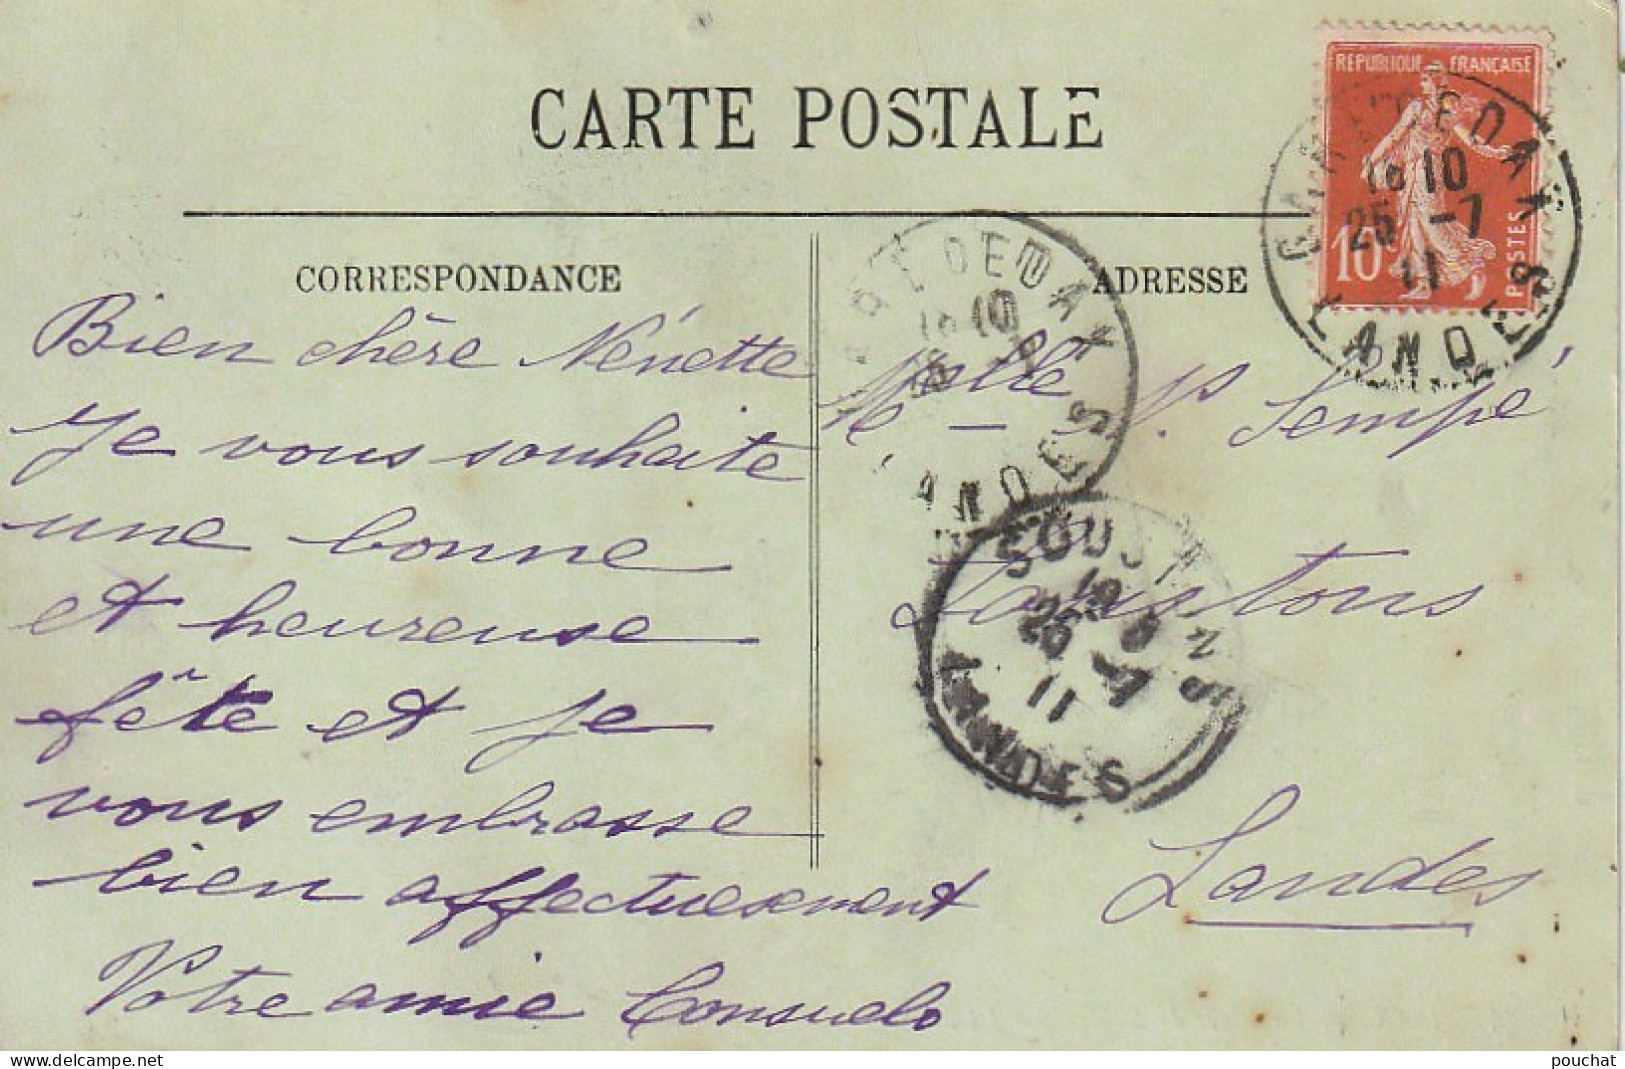 CARTE POSTALE
CORRESPONDANCE
Bien chère Nénette
Je vous souhaite
une bonne
et heureuse
fête et je
vous embrasse
bien affectueusement
Votre amie Consuelo
ADRESSE
Melle - P. Sempé
Loustons
Landes
REPUBLIQUE FRANÇAISE
10c
POSTES
GARE DE DAX
18 10
25 -7
11
LANDES
GARE DE DAX
18 10
LANDES
SOUSTONS
26 -7
11
LANDES
delcampe.net
pouchat